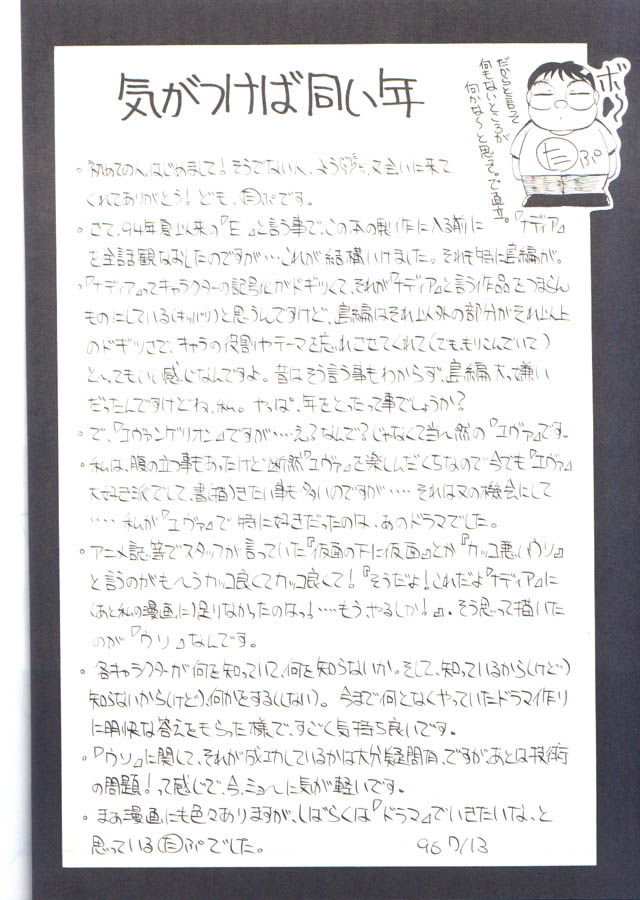 気がつけば同い年
だからと言って
何もないところが
何かな〜と思えで直立。
ボ〜
たぷ
。初めての人、はじめまして！そうでない人、ようこそ、又会いに来て
くれてありがとう！ども、たぷです。
。さて、94年夏以来の『E』と言う事で、この本の製作に入る前に『ナディア』
を全話観なおしたのですが…これが結構いけました。それも特に島編が。
。『ナディア』ってキャラクターの記号化がドギツくて、それが『ナディア』と言う作品をつまらん
ものにしている(キッパリ)と思うんですけど、島編はそれ以外の部分がそれ以上
のドギツさで、キャラの役割やテーマを忘れさせてくれて(でも、もりこんでいて)
と〜ってもいい感じなんですよ。昔はそう言う事もわからず、島編大っ嫌い
だったんですけどね、私。やっぱ、年をとったって事でしょうか？
。で、『エヴァンゲリオン』ですが……え？なんで？じゃなくて当〜然の『エヴァ』です。
。私は、腹の立つ事もあったけど断然『エヴァ』を楽しんだくちなので今でも『エヴァ』
大好き派でして、書(描)きたい事も多いのですが……それは又の機会にして
……私が『エヴァ』で特に好きだったのは、あのドラマでした。
。アニメ誌等でスタッフが言っていた『仮面の下に仮面』とか『カッコ悪いウソ』
と言うのがも〜うカッコ良くてカッコ良くて！『そうだよ！これだよ『ナディア』に
(あと私の漫画に)足りなかったのはっ！……もう、やるしか！』。そう思って描いた
のが『ウソ』なんです。
。各キャラクターが何を知っていて、何を知らないか。そして、知っているから(けど)
知らないから(けど)、何かをする(しない)。今まで何となくやっていたドラマ作り
に明快な答えをもらった様で、すごく気持ち良いです。
。『ウソ』に関して、それが成功しているかは大分疑問有、ですが、あとは技術
の問題！って感じで、今、ミョ〜に気が軽いです。
。まあ漫画にも色々ありますが、しばらくは『ドラマ』でいきたいな、と
思っているたぷでした。
96 7/13